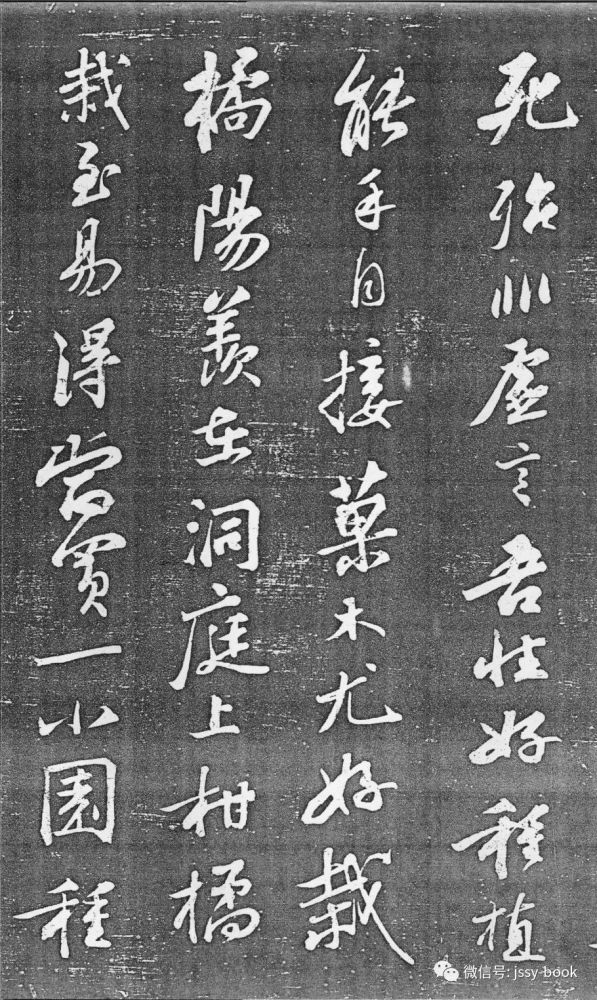 死殆非虛言吾性好種植
能手自接菓木尤好栽
橘陽羨在洞庭上柑橘
栽至易得當買一小園種
微信号: jssy-book